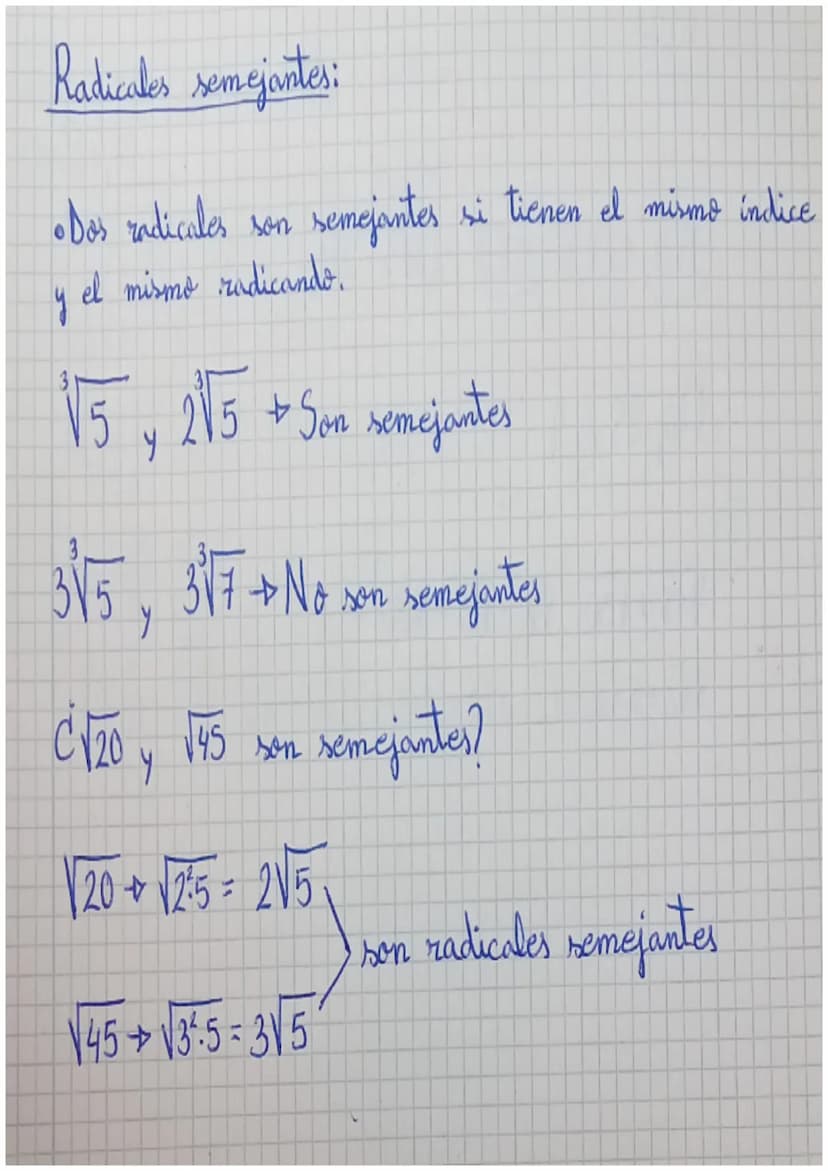 Radicales semejantes:
•Dos radicales son semejantes si tienen el mismo índice
y el mismo radicando.
∛5 y 2∛5 → Son semejantes
3∛5 y 3∛7 → No son semejantes
¿√20 y √45 son semejantes?
√20 → √2²·5 = 2√5
son radicales semejantes
√45 → √3²·5 = 3√5